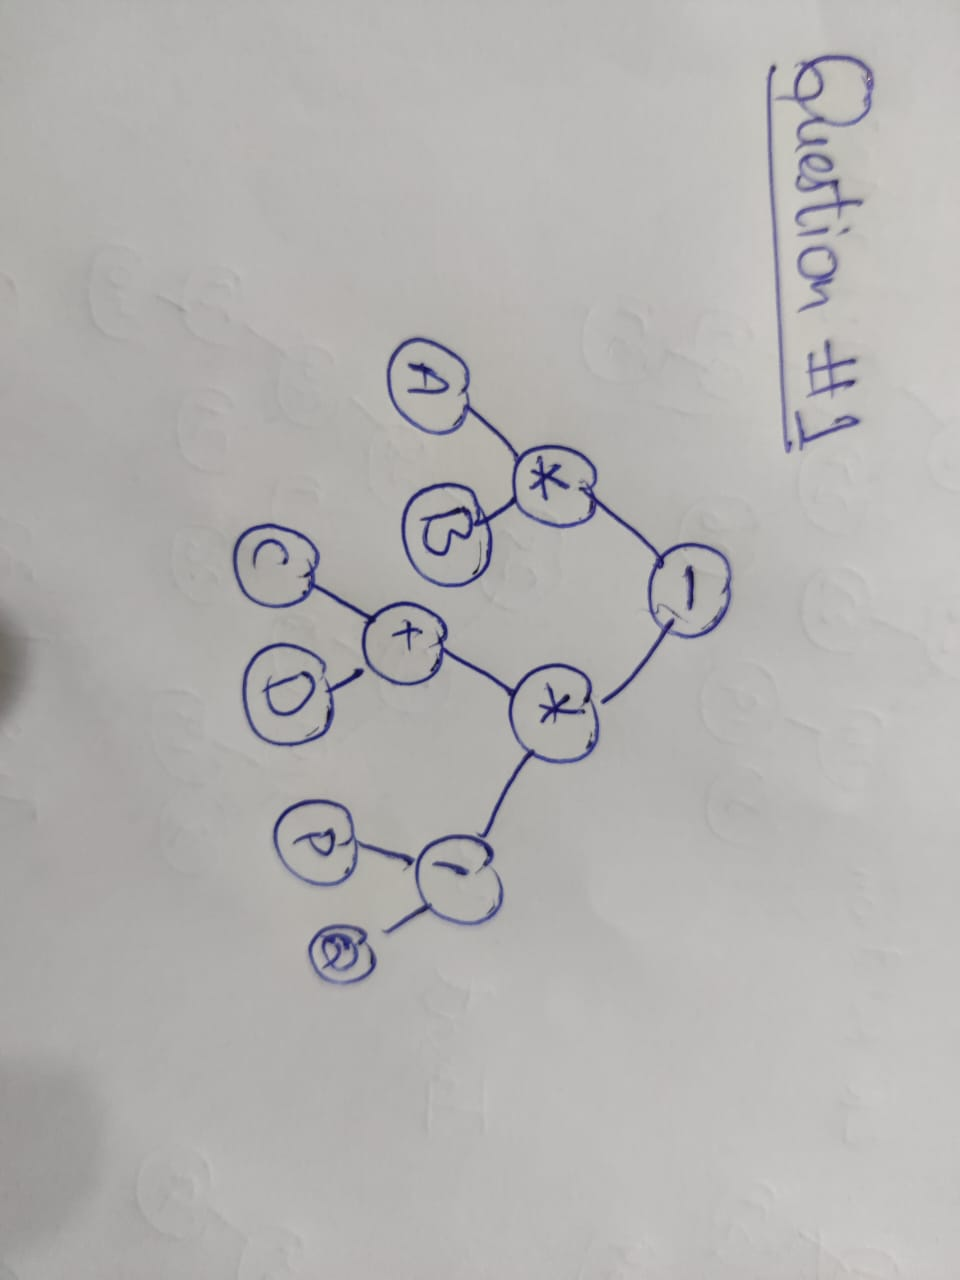 Question #1
-
* *
A B + /
C D P